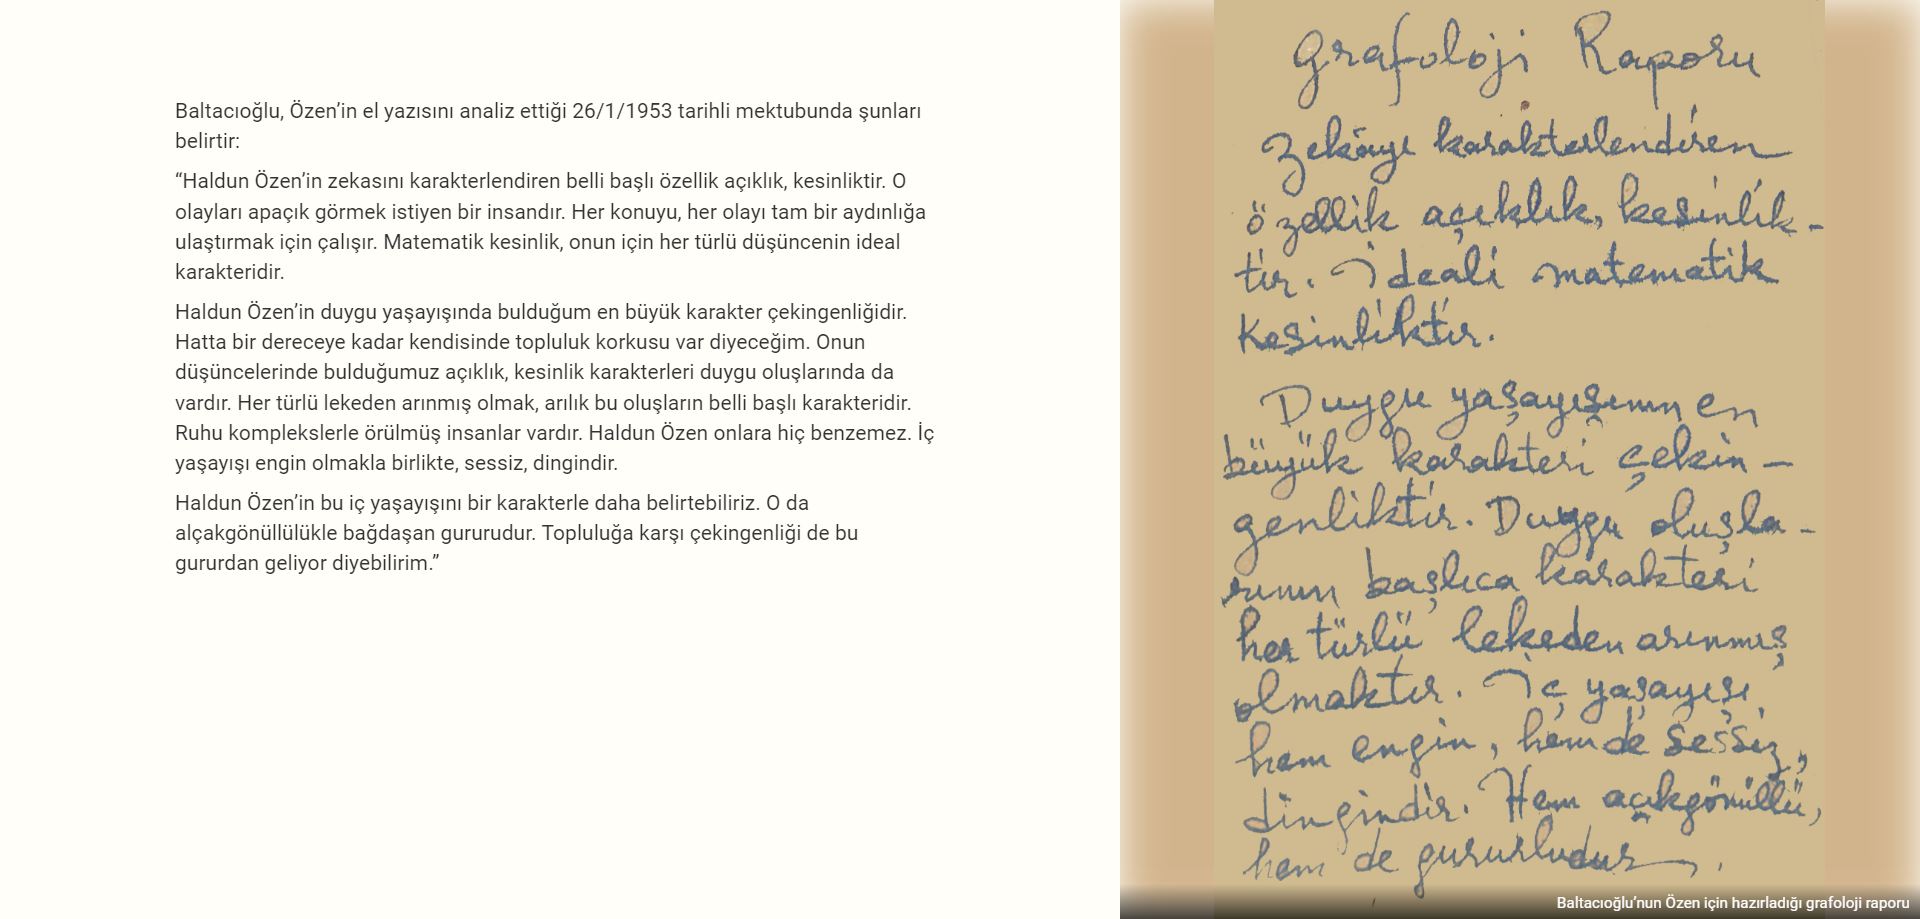 Baltacıoğlu, Özen’in el yazısını analiz ettiği 26/1/1953 tarihli mektubunda şunları
belirtir:
“Haldun Özen’in zekasını karakterlendiren belli başlı özellik açıklık, kesinliktir. O
olayları apaçık görmek istiyen bir insandır. Her konuyu, her olayı tam bir aydınlığa
ulaştırmak için çalışır. Matematik kesinlik, onun için her türlü düşüncenin ideal
karakteridir.
Haldun Özen’in duygu yaşayışında bulduğum en büyük karakter çekingenliğidir.
Hatta bir dereceye kadar kendisinde topluluk korkusu var diyeceğim. Onun
düşüncelerinde bulduğumuz açıklık, kesinlik karakterleri duygu oluşlarında da
vardır. Her türlü lekeden arınmış olmak, arılık bu oluşların belli başlı karakteridir.
Ruhu komplekslerle örülmüş insanlar vardır. Haldun Özen onlara hiç benzemez. İç
yaşayışı engin olmakla birlikte, sessiz, dingindir.
Haldun Özen’in bu iç yaşayışını bir karakterle daha belirtebiliriz. O da
alçakgönüllülükle bağdaşan gururudur. Topluluğa karşı çekingenliği de bu
gururdan geliyor diyebilirim.”
Grafoloji Raporu
Zekâyı karakterlendiren
özellik açıklık, kesinlik-
tir. İdeali matematik
kesinliktir.
Duygu yaşayışının en
büyük karakteri çekin-
genliktir. Duygu oluşla-
rının başlıca karakteri
her türlü lekeden arınmış
olmaktır. İç yaşayışı
hem engin, hem de sessiz,
dingindir. Hem açıkgönüllü,
hem de gururludur.
Baltacıoğlu’nun Özen için hazırladığı grafoloji raporu